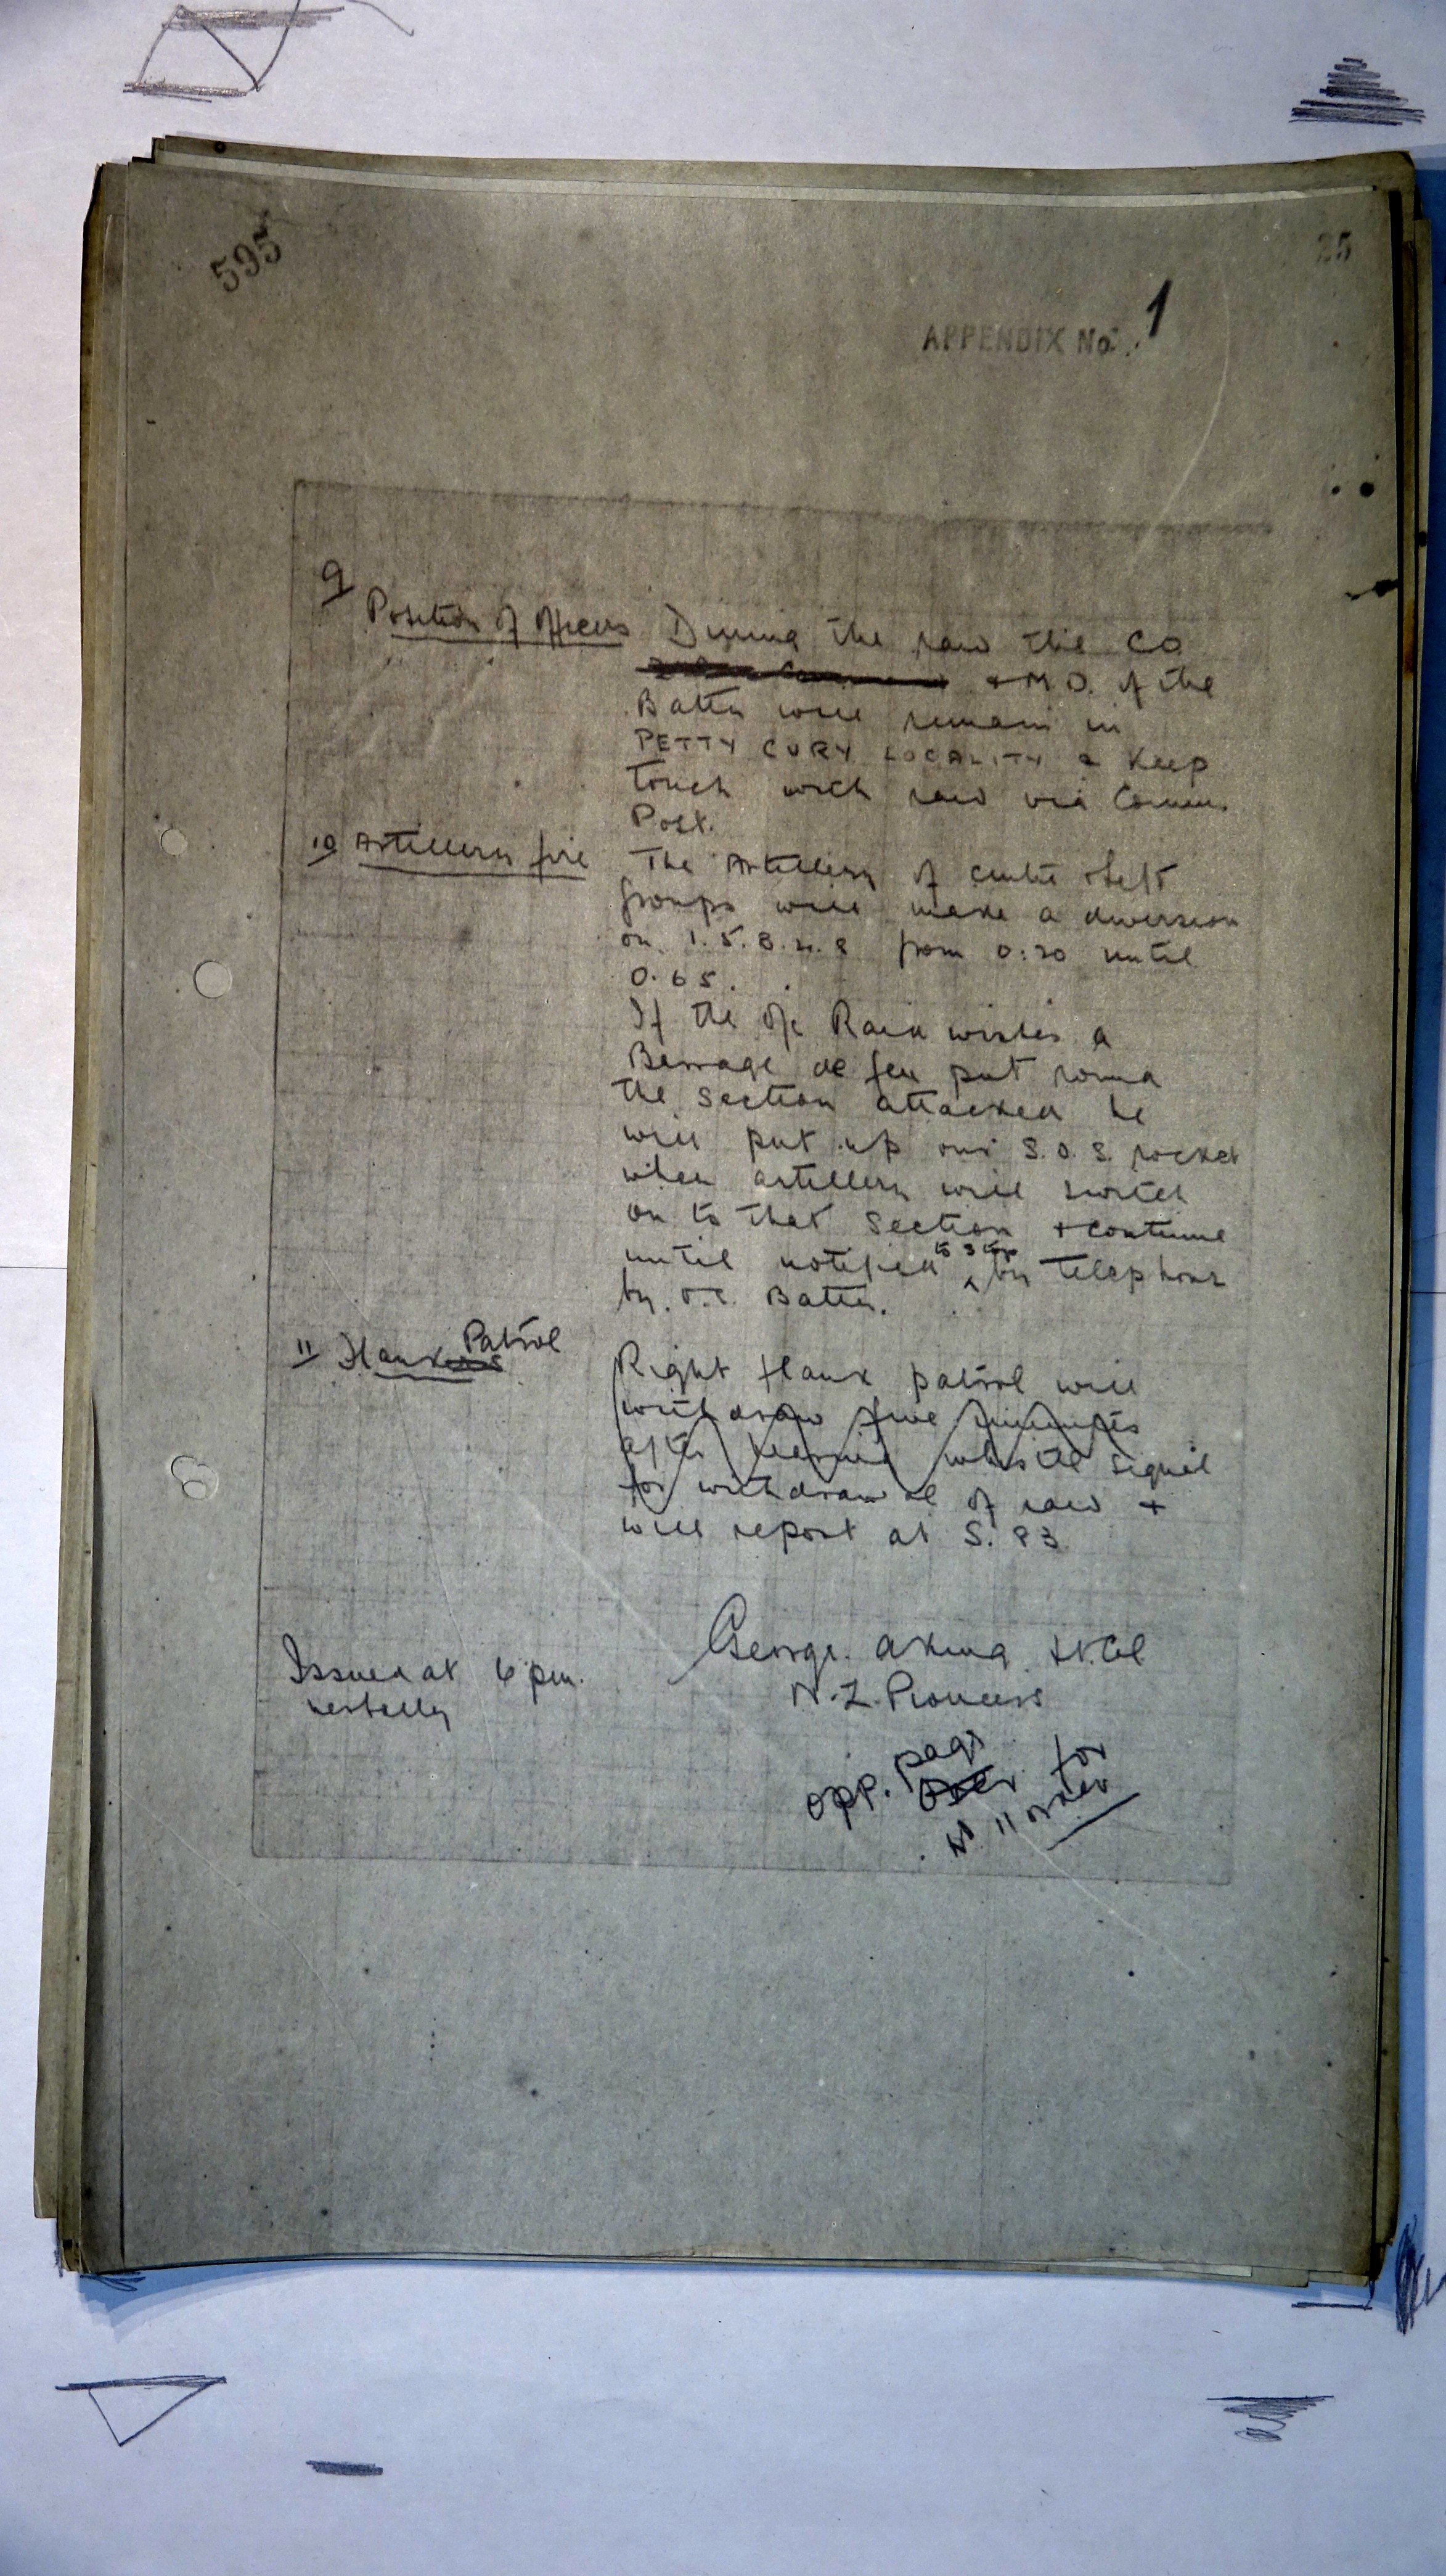 595
25
APPENDIX No. 1
9 Position of Officers During the raid the CO
+ M.O. of the
Battn will remain in
PETTY CURY LOCALITY & keep
touch with raid via Comm.
Post.
10 Artillery fire The Artillery of centre & left
groups will make a diversion
on I.5.B.4.8 from 0:20 until
0.65.
If the O/c Raid wishes a
Barrage de feu put round
the section attacked he
will put up one S.O.S. rocket
when artillery will switch
on to that section + continue
until notified to stop by telephone
by O.C. Battn.
11 Flank Patrol Right flank patrol will
withdraw five minutes
after hearing whistle signal
for withdrawal of raid +
will report at S. 83
Issued at 6 pm. George A King Lt. Col
verbally N.Z. Pioneers
opp. page over for
No 11 order